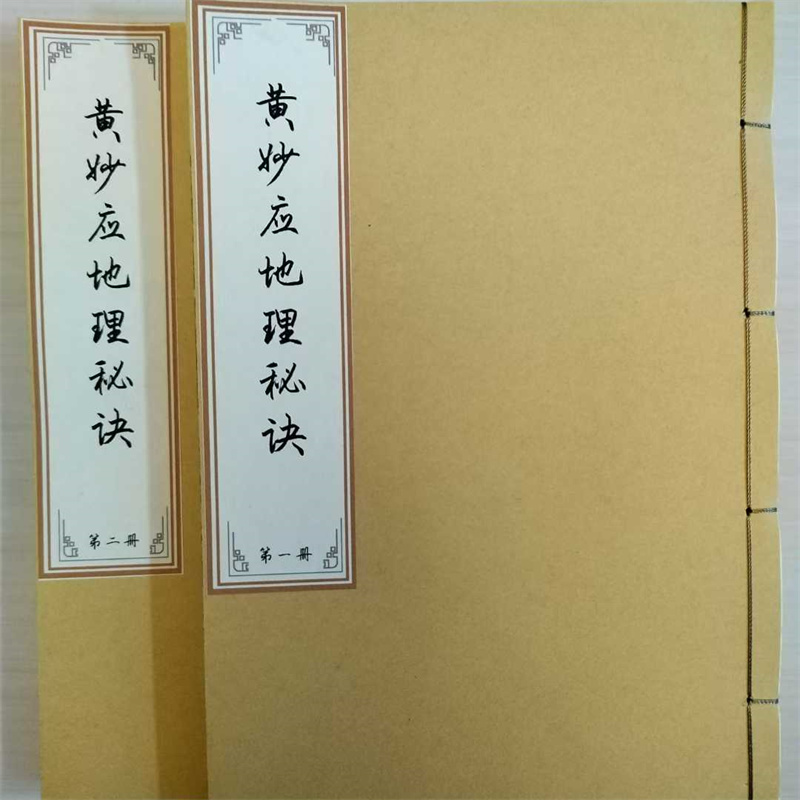 黄妙应地理秘诀
第一册
黄妙应地理秘诀
第二册